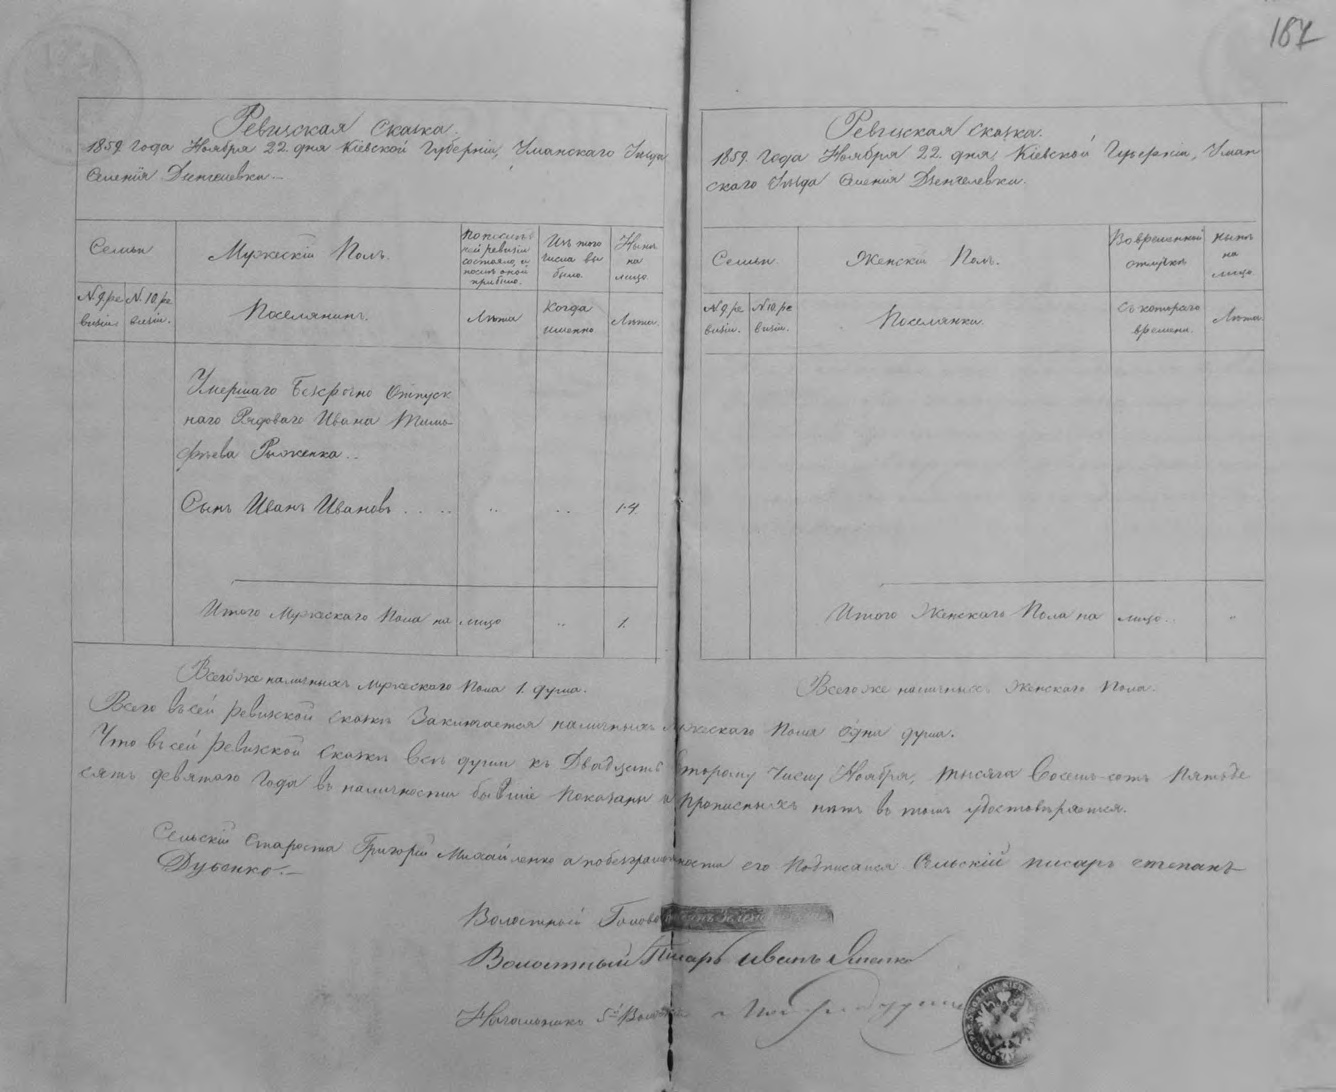 187
Ревизская Сказка.
1859 года Ноября 22 дня Кіевской Губерніи, Уманскаго Уѣзда
Селенія Дзенгелевки.—
Семьи
Мужескій Полъ.
По послѣдней ревизіи состояло, и послѣ оной прибыло.
Изъ того числа выбыло.
Нынѣ на лицо.
№ 9 ревизіи.
№ 10. ревизіи.
Поселянинъ.
Лѣта
Когда именно
Лѣта.
Умершаго Безсрочно Отпуск
наго Рядоваго Ивана Тимо-
фѣева Рыженка..
Сынъ Иванъ Ивановъ
14.
Итого Мужескаго Пола на лицо
1.
Всего же наличныхъ Мужескаго Пола 1. душа.
Ревизская Сказка.
1859 года Ноября 22 дня, Кіевской Губерніи, Уман-
скаго Уѣзда Селенія Дзенгелевки.
Семьи.
Женскій Полъ.
Во временной отлучкѣ
Нынѣ на лицо.
№ 9. ревизіи.
№ 10. ревизіи.
Поселянка.
Съ котораго времени.
Лѣта
Итого Женскаго Пола на лицо..
Всего же наличныхъ Женскаго Пола.
Всего въ сей ревизской сказкѣ Заключается наличныхъ мужескаго Пола одна душа.
Что въ сей ревизской Сказкѣ всѣ души къ Двадцать второму Числу Ноября, тысяча восемь-сотъ Пятьде
сятъ девятаго года въ наличности бывшіе показаны и прописныхъ нѣтъ въ томъ удостовѣряется.
Сельскій Староста Григорій Михайленко а по безграмотности его Подписался Сельскій писарь степанъ
Дубенко.—
Волостный Голова
Волостный Писарь Иванъ
Начальникъ 5й